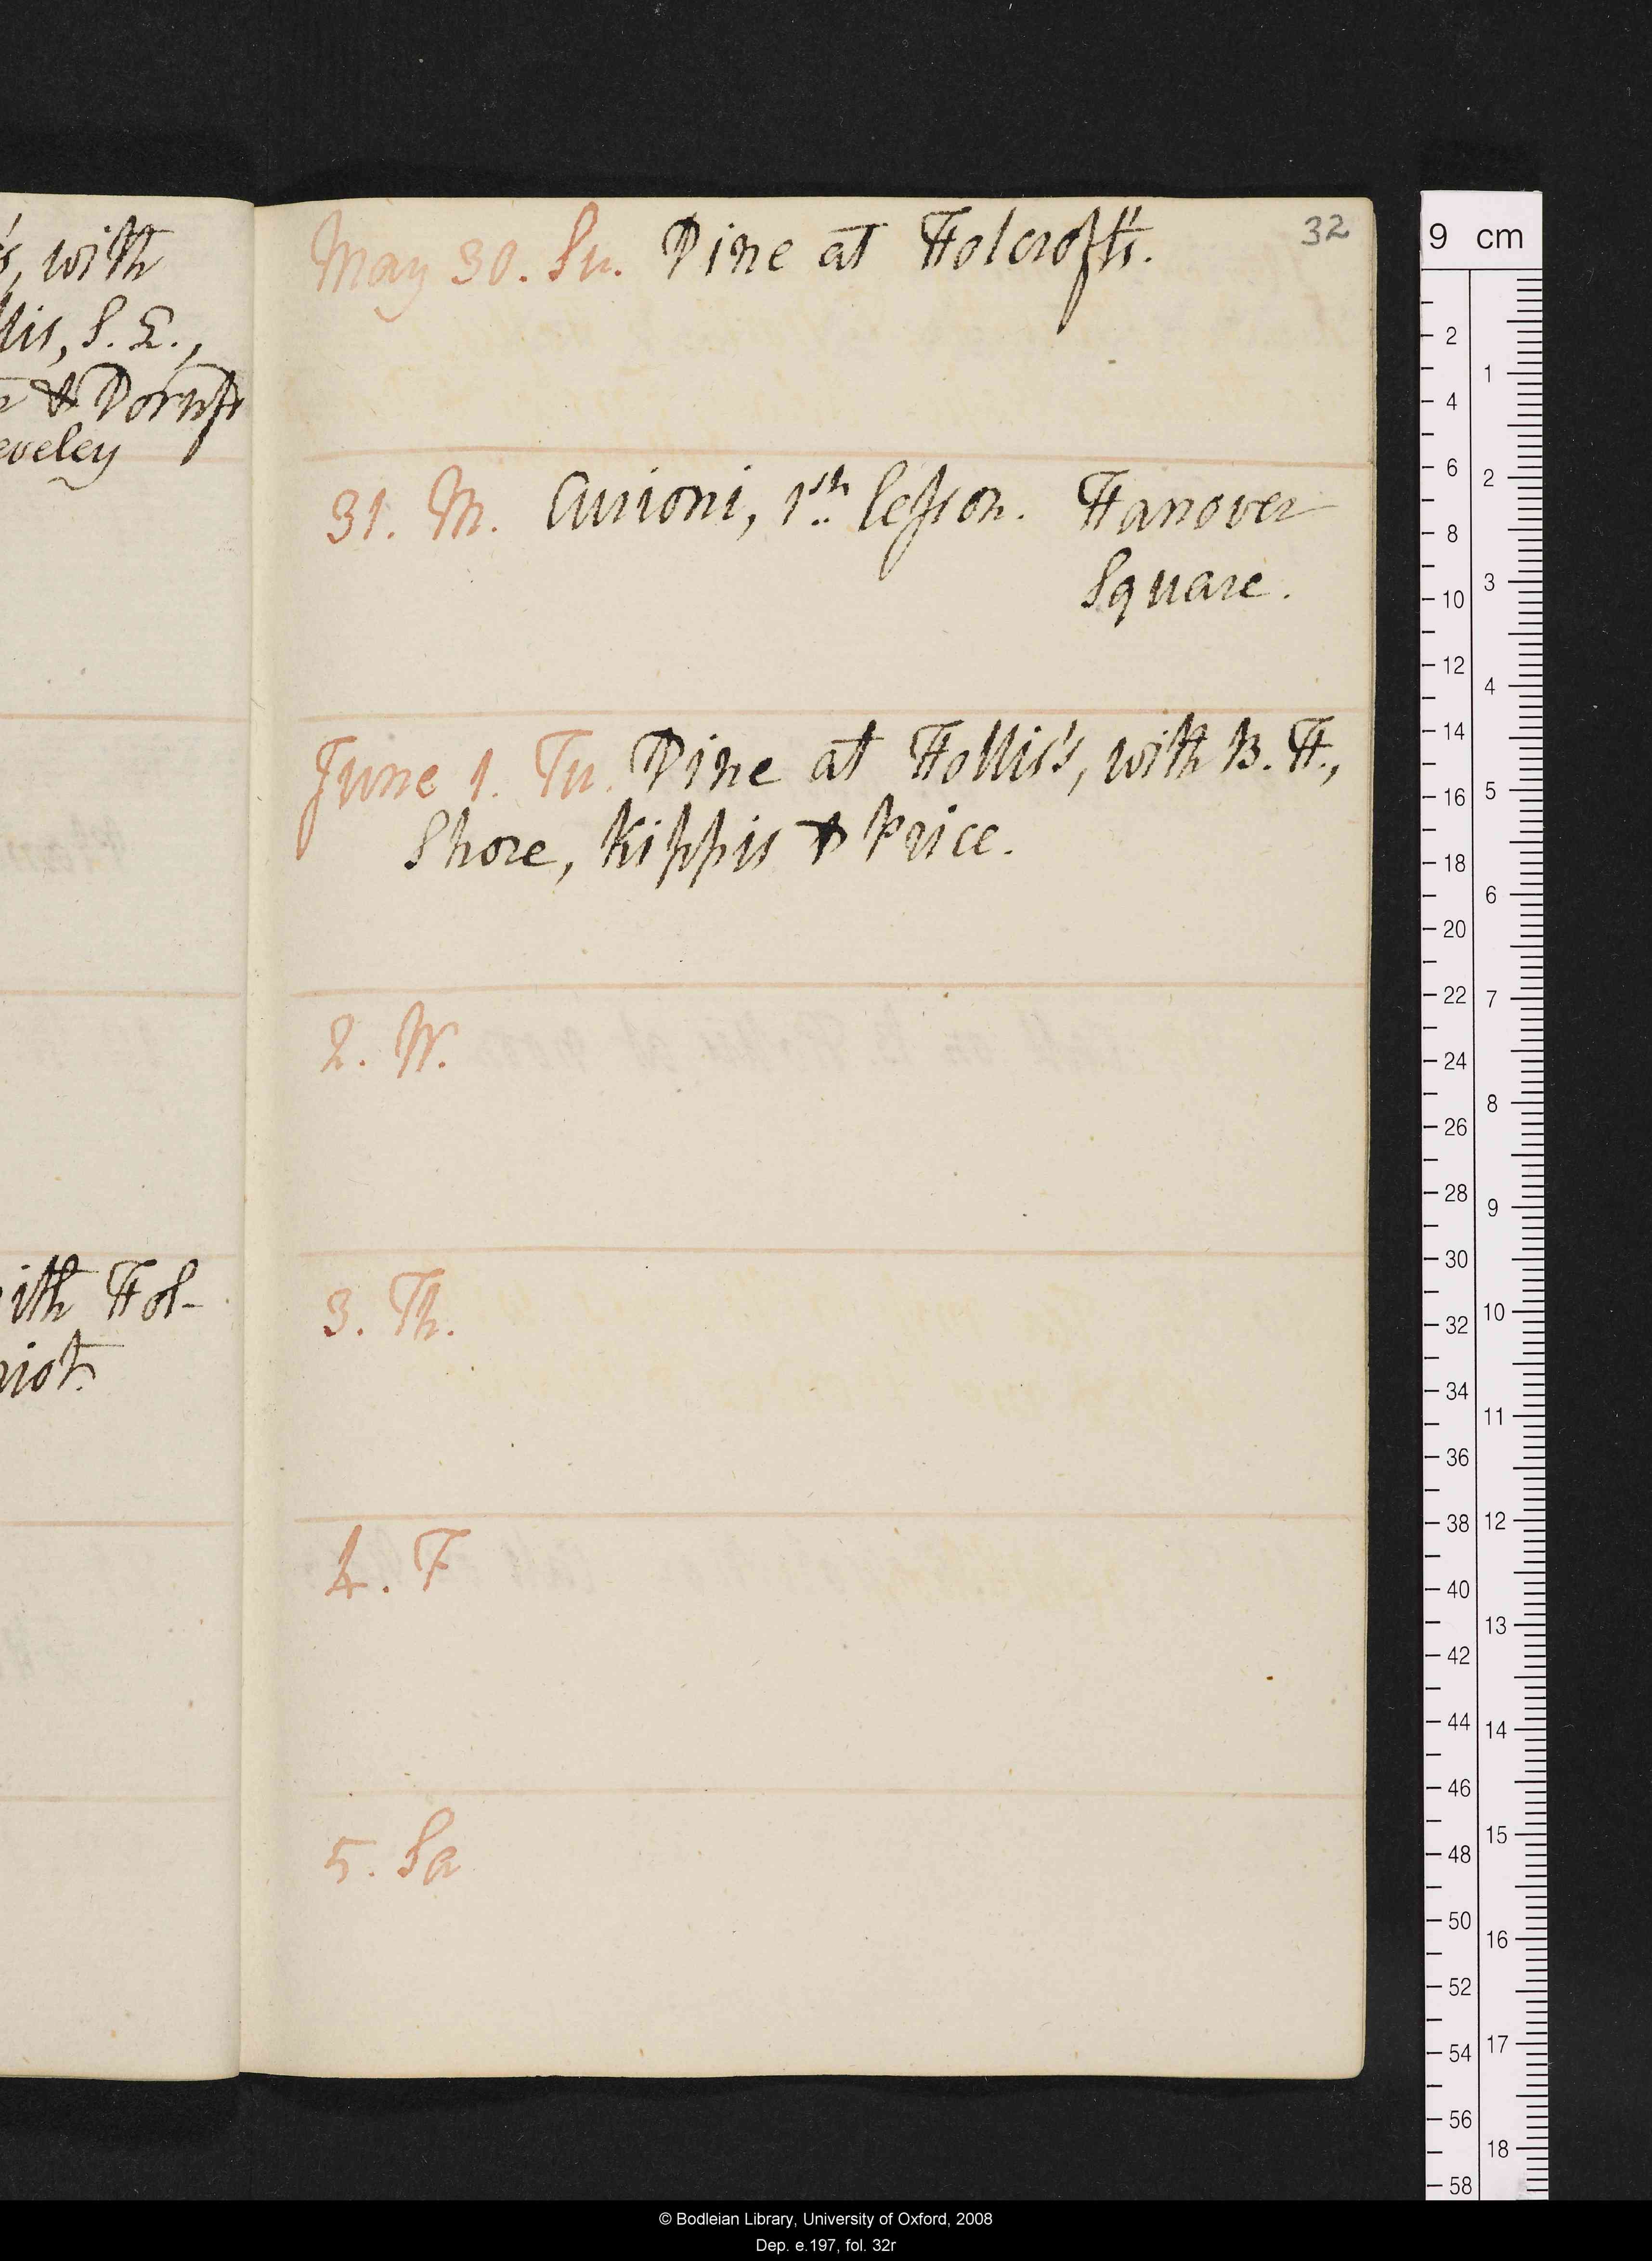 s, with
llis, S. E.,
& Dornf
eveley
ith Hol-
riot.
32
May 30. Su. Dine at Holcroft's.
31. M. Curioni, 1st lesson. Hanover
Square.
June 1. Tu. Dine at Hollis's, with B. H.,
Shore, Kippis & Price.
2. W.
3. Th.
4. F
5. Sa
9 cm
2
4
6
8
10
12
14
16
18
20
22
24
26
28
30
32
34
36
38
40
42
44
46
48
50
52
54
56
58
1
2
3
4
5
6
7
8
9
10
11
12
13
14
15
16
17
18
© Bodleian Library, University of Oxford, 2008
Dep. e.197, fol. 32r